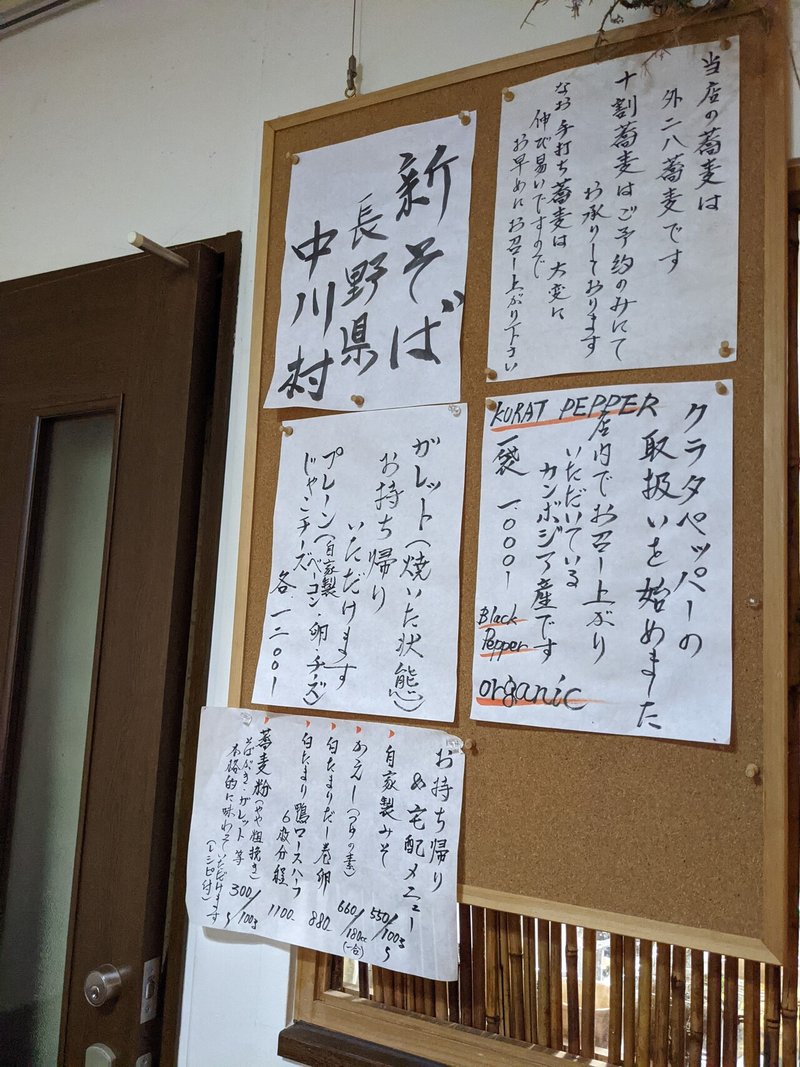 当店の蕎麦は
外二八蕎麦です
十割蕎麦はご予約のみにて
お承りしております
なお手打ち蕎麦は大変に
伸び易いですので
お早めにお召し上がり下さい
新そば
長野県
中川村
クラタペッパーの
取扱いを始めました
KURAT PEPPER
店内でお召し上がり
いただいている
カンボジア産です
一袋 1.000-
Black
Pepper
organic
ガレット(焼いた状態)
お持ち帰り
いただけます
プレーン(自家製ベーコン・卵・チーズ)
じゃこチーズ
各 1200-
お持ち帰り
宅配メニュー
自家製みそ 550/100g
かえし(つゆの素) 660/180cc(一合)
白たまりだし巻卵 880
白たまり鴨ロースハーフ
6皮分程 1100
蕎麦粉(やや粗挽き) 300/100g
そばがき・ガレット等
本格的に味わっていただけます
(レシピ付)